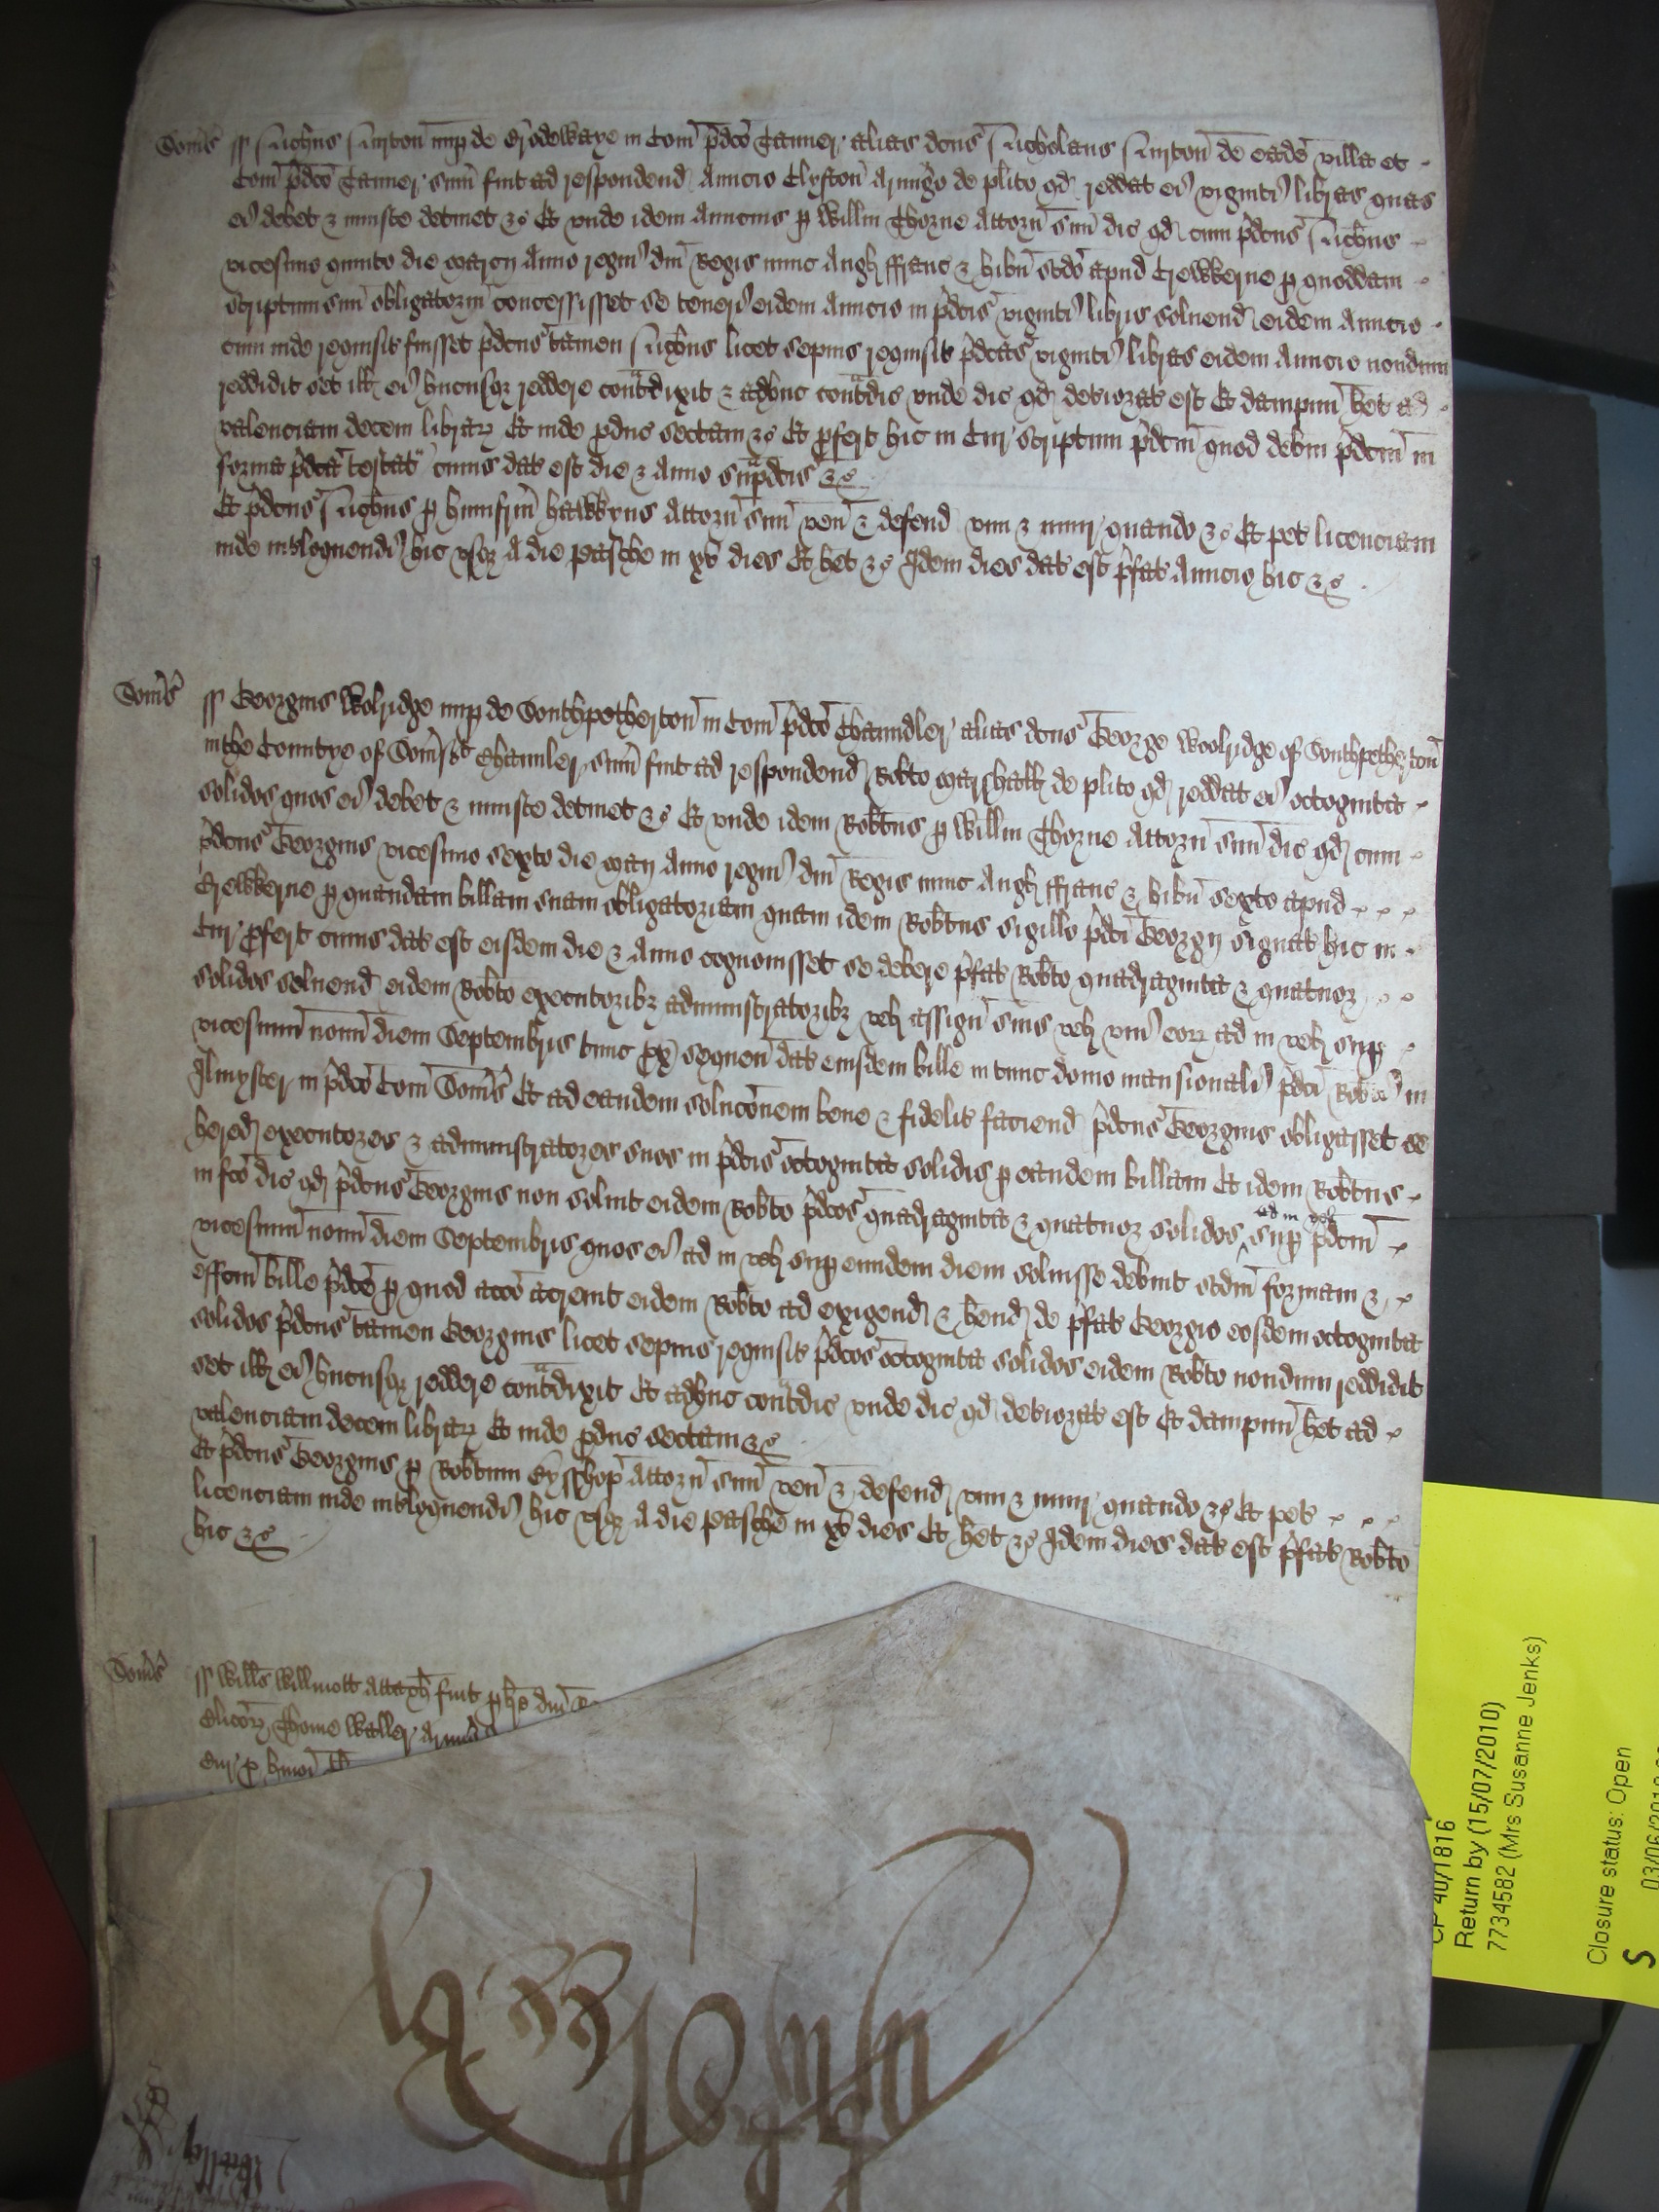 Som̃s ss Nich̃us Nurton nup de Crodewaye in Com̃ p̃dc̃o Tanner alias dc̃us Nicholaus Nurton de eadẽ villa et
Com̃ p̃dc̃o Tanner sum̃ fuit ad respondend Amicio Clyfton Armig̃o de plito qd reddat ei viginti libras quas
ei debet & iniuste detinet &c Et unde idem Amicius p Willm Thorne Attorñ suũ dic qd cum p̃dc̃us Nich̃us
vicesimo quinto die Marcij Anno regni dñi Regis nunc Angl ffranc & hib̃n sc̃do apud Crewkerne p quoddam
scriptum suũ obligatoriũ concessisset se teneri eidem Amicio in p̃dc̃is viginti libris solvend eidem Amicio
cum inde requisit fuisset p̃dc̃us tamen Nich̃us licet sepius requisit p̃dc̃as viginti libras eidem Amicio nondum
reddidit set ill ei hucusq reddere cont̃dixit & adhuc cont̃dic unde dic qd deteriorat est Et dampnũ h̃et ad
valenciam decem librar Et inde p̃duc sectam &c Et p̃fert hic in Cur scriptum p̃dc̃m quod debm p̃dc̃m in
forma p̃dc̃a testat cuius dat est die & Anno sup̃dc̃is &c
Et p̃dc̃us Nich̃us p humfrm̃ hawkyns Attorñ suũ veñ & defend vim & iniur quando &c Et pet licenciam
inde int̃loquendi hic usq A die pasche in xv dies Et h̃et &c Idem dies dat est p̃fat Amicio hic &c
Som̃s ss Georgius Wolridge nup de Southpetherton in Com̃ p̃dc̃o Chaundler alias dc̃us George Woolridge of Southpetherton
in the Countye of Som̃st Chaunler sum̃ fuit ad respondend Rob̃to Marshall de plito qd reddat ei octoginta
solidos quos ei debet & iniuste detinet &c Et unde idem Rob̃tus p Willm Thorne Attorñ suũ dic qd cum
p̃dc̃us Georgius vicesimo sexto die Maij Anno regni dñi Regis nunc Angl ffranc & hib̃n sexto apud
Crewkerne p quandam billam suam obligatoriam quam idem Rob̃tus sigillo p̃dc̃i Georgij signat hic in
Cur p̃fert cuius dat est eisdem die & Anno cognovisset se debere p̃fat Rob̃to quadraginta & quatuor
solidos solvend eidem Rob̃to executoribz administratoribz vel assigñ suis vel uni eorz ad in vel sup
vicesimũ nonũ diem Septembris tunc p̃x sequeñ dat eiusdem bille in tunc domo mansionali p̃dc̃i Rob̃ti in
Ilmyster in p̃dc̃o Com̃ Som̃s Et ad eandem soluc̃onem bene & fidelit faciend p̃dc̃us Georgius obligasset se
hered executores & administratores suos in p̃dc̃is octoginta solidis p eandem billam Et idem Rob̃tus
in fc̃o dic qd p̃dc̃us Georgius non solvit eidem Rob̃to p̃dc̃os quadraginta & quatuor solidos ad in vel sup p̃dc̃m
vicesimũ nonũ diem Septembris quos ei ad in vel sup eundem diem solvisse debuit sc̃dm formam &
effc̃m bille p̃dc̃e p quod acc̃o accrevit eidem Rob̃to ad exigend & h̃end de p̃fat Georgio eosdem octoginta
solidos p̃dc̃us tamen Georgius licet sepius requisit p̃dc̃os octoginta solidos eidem Rob̃to nondum reddidit
set ill ei hucusq reddere cont̃dixit Et adhuc cont̃dic unde dic qd deteriorat est Et dampnũ h̃et ad
valenciam decem librar Et inde p̃duc sectam &c
Et p̃dc̃us Georgius p Rob̃tum Bysshop Attorñ suũ veñ & defend vim & iniur quando &c Et pet
licenciam inde int̃loquendi hic usq A die pasche in xv dies Et h̃et &c Idem dies dat est p̃fat Rob̃to
hic &c
Som̃s ss Willс Willmott attach fuit p bre dñi
Thome Waller
CP 40/1816
Return by (15/07/2010)
7734582 (Mrs Susanne Jenks)
Closure status: Open